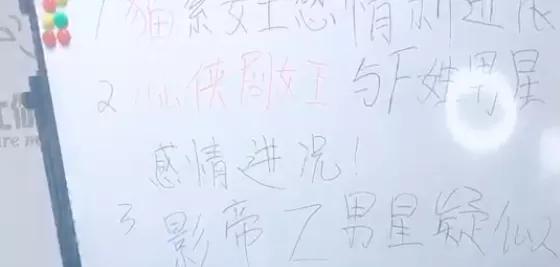 猫系女士恋情新进展
2 仙侠剧女王与F姓男星
感情进况！
3 影帝Z男星疑似